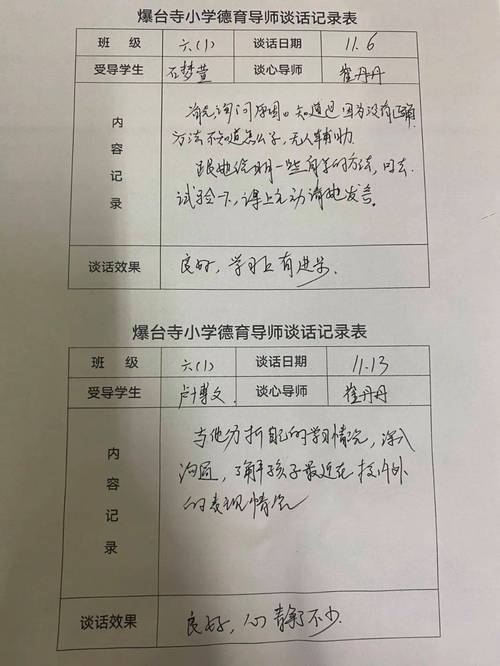 爆台寺小学德育导师谈话记录表
班 级 六(1) 谈话日期 11.6
受导学生 石梦萱 谈心导师 崔丹丹
内容记录
首先询问原因。知道是因为没有正确
方法不知道怎么学,无人辅助。
跟她说明一些自学的方法,回去
试验一下,课上主动请她发言。
谈话效果 良好,学习上有进步.
爆台寺小学德育导师谈话记录表
班 级 六(1) 谈话日期 11.13
受导学生 卢博文 谈心导师 崔丹丹
内容记录
与他分析自己的学习情况,深入
沟通,了解孩子最近在校内外
的表现情况
谈话效果 良好,心静了不少.